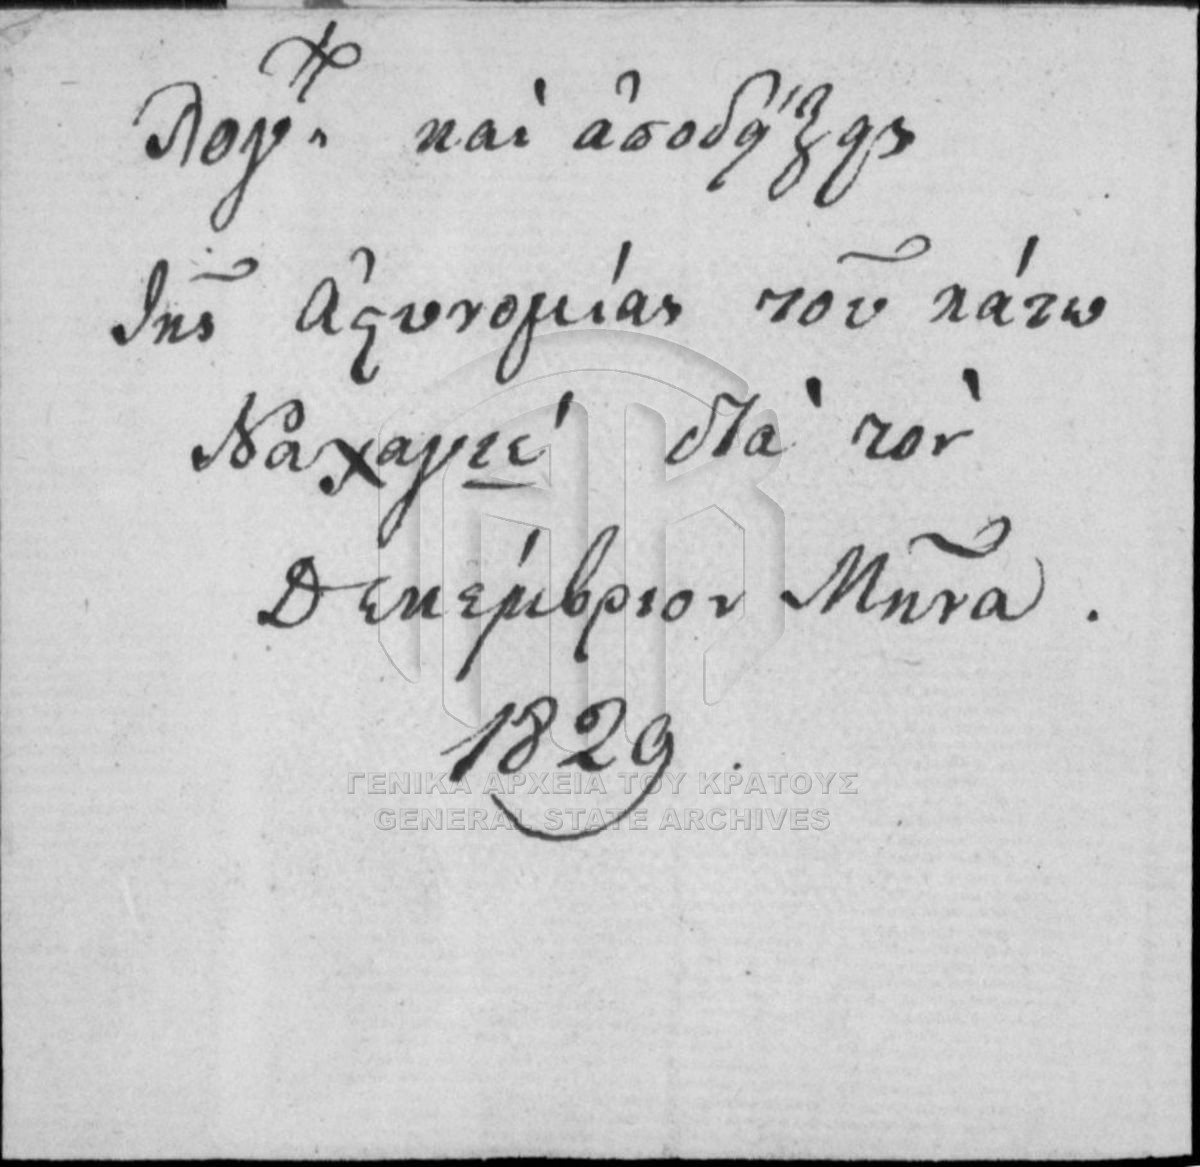 Λογ. καὶ ἀποδείξεις
τῆς Ἀστυνομίας τοῦ κάτω
Ναχαγιέ διὰ τὸν
Δεκέμβριον Μῆνα.
1829.
ΓΕΝΙΚΑ ΑΡΧΕΙΑ ΤΟΥ ΚΡΑΤΟΥΣ
GENERAL STATE ARCHIVES